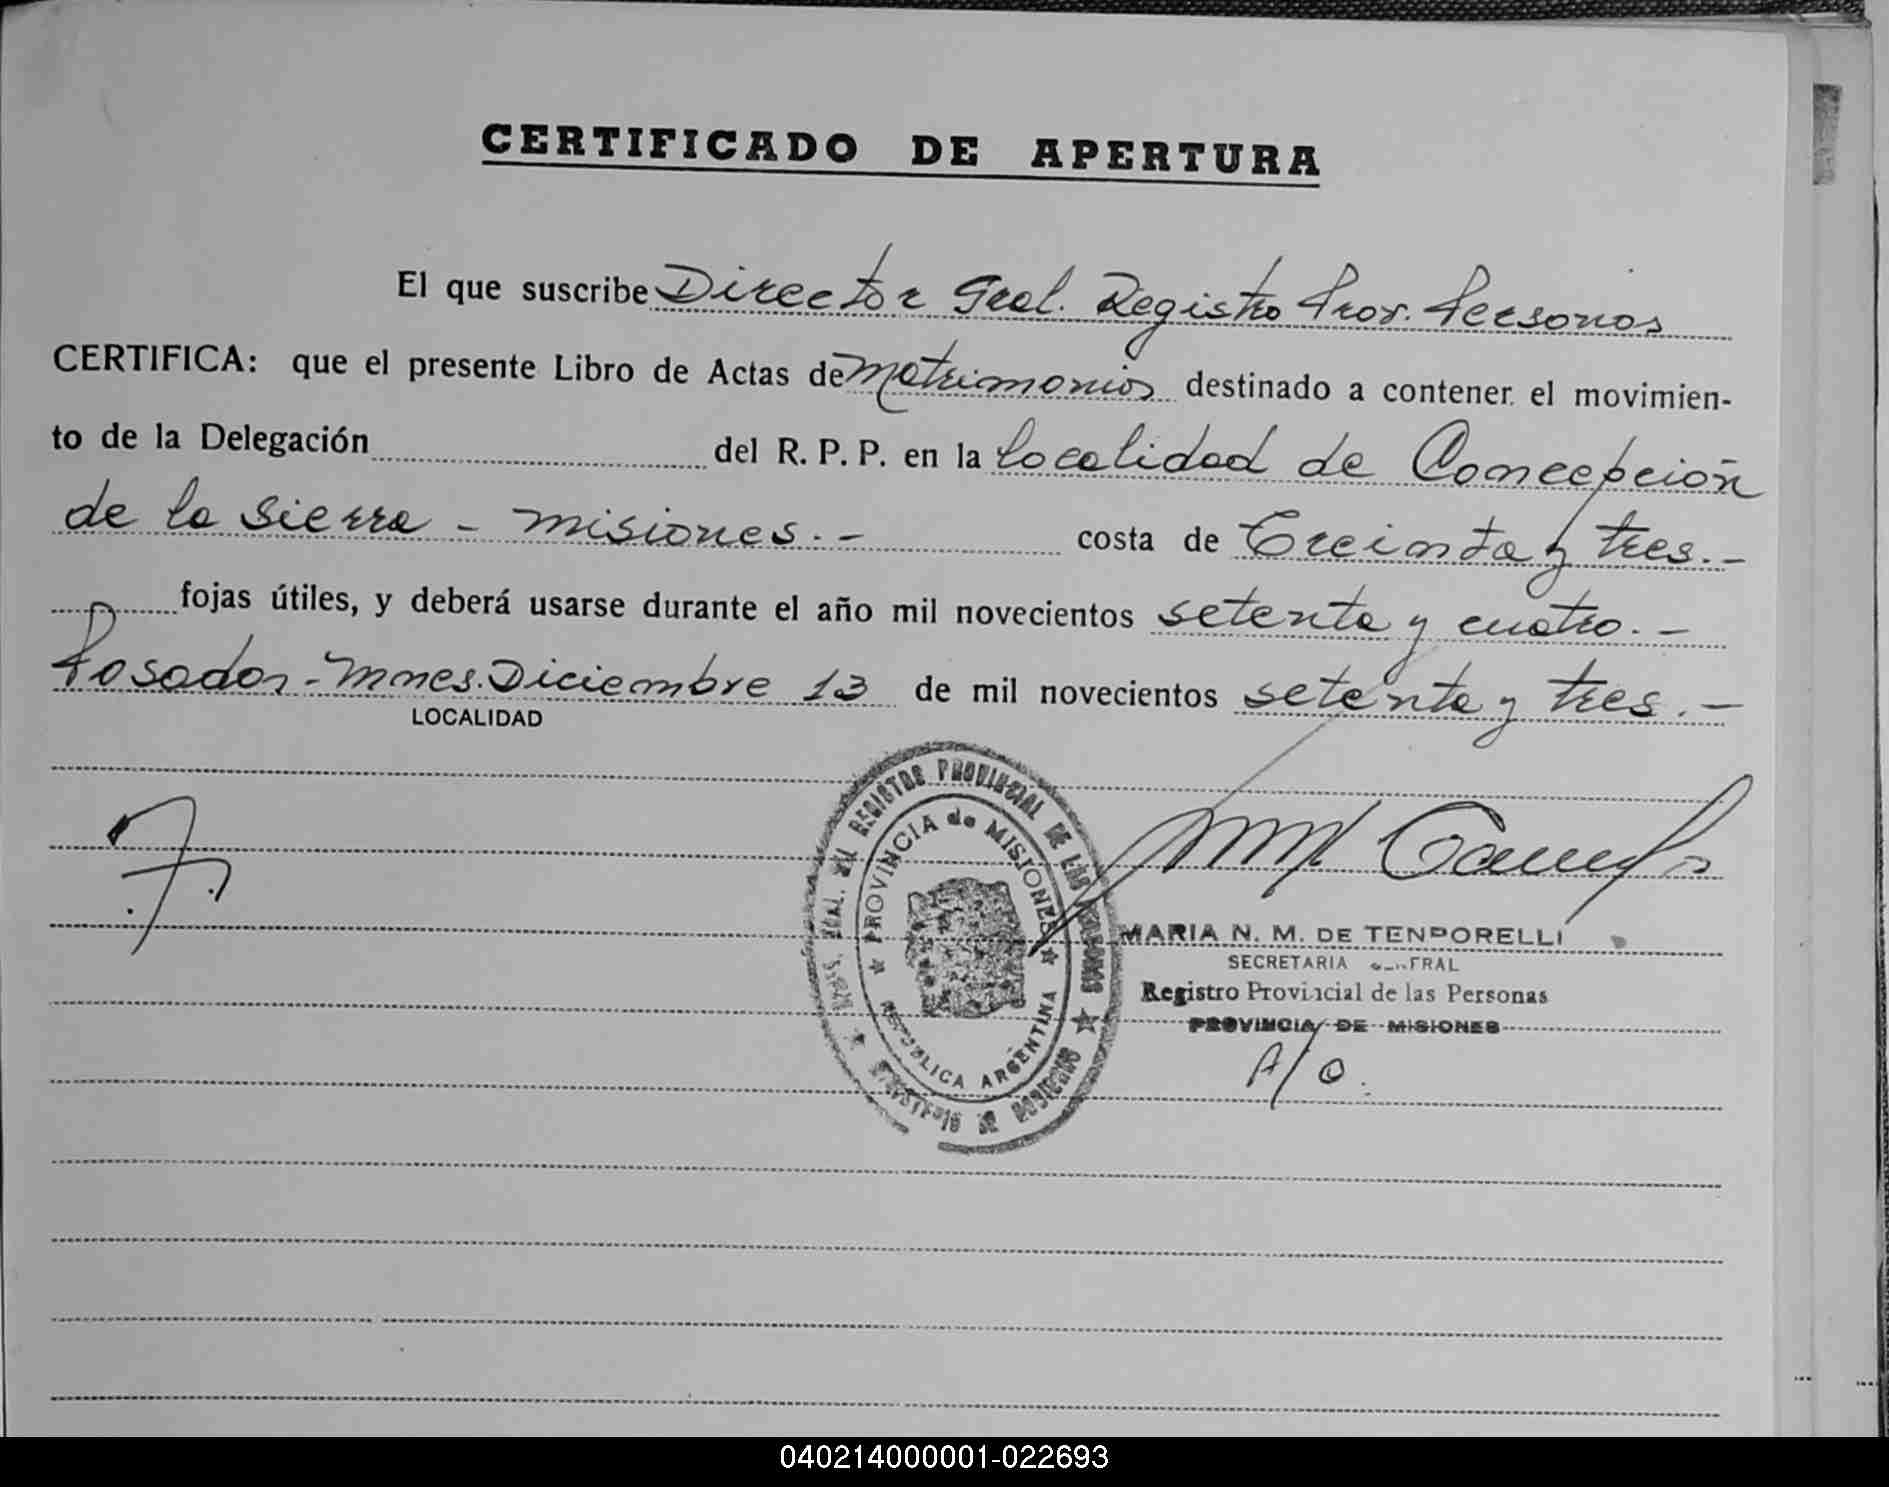 CERTIFICADO DE APERTURA
El que suscribe Director Gral. Registro Prov. Personas
CERTIFICA: que el presente Libro de Actas de Matrimonios destinado a contener el movimien-
to de la Delegación del R. P. P. en la localidad de Concepción
de la Sierra - Misiones. - costa de Treinta y tres. -
fojas útiles, y deberá usarse durante el año mil novecientos setenta y cuatro. -
Posadas - Mnes. Diciembre 13 de mil novecientos setenta y tres. -
LOCALIDAD
REGISTRO PROVINCIAL DE LAS PERSONAS
PROVINCIA de MISIONES
REPUBLICA ARGENTINA
MARIA N. M. DE TEMPORELLI
SECRETARIA GENERAL
Registro Provincial de las Personas
PROVINCIA DE MISIONES
A/O.
040214000001-022693